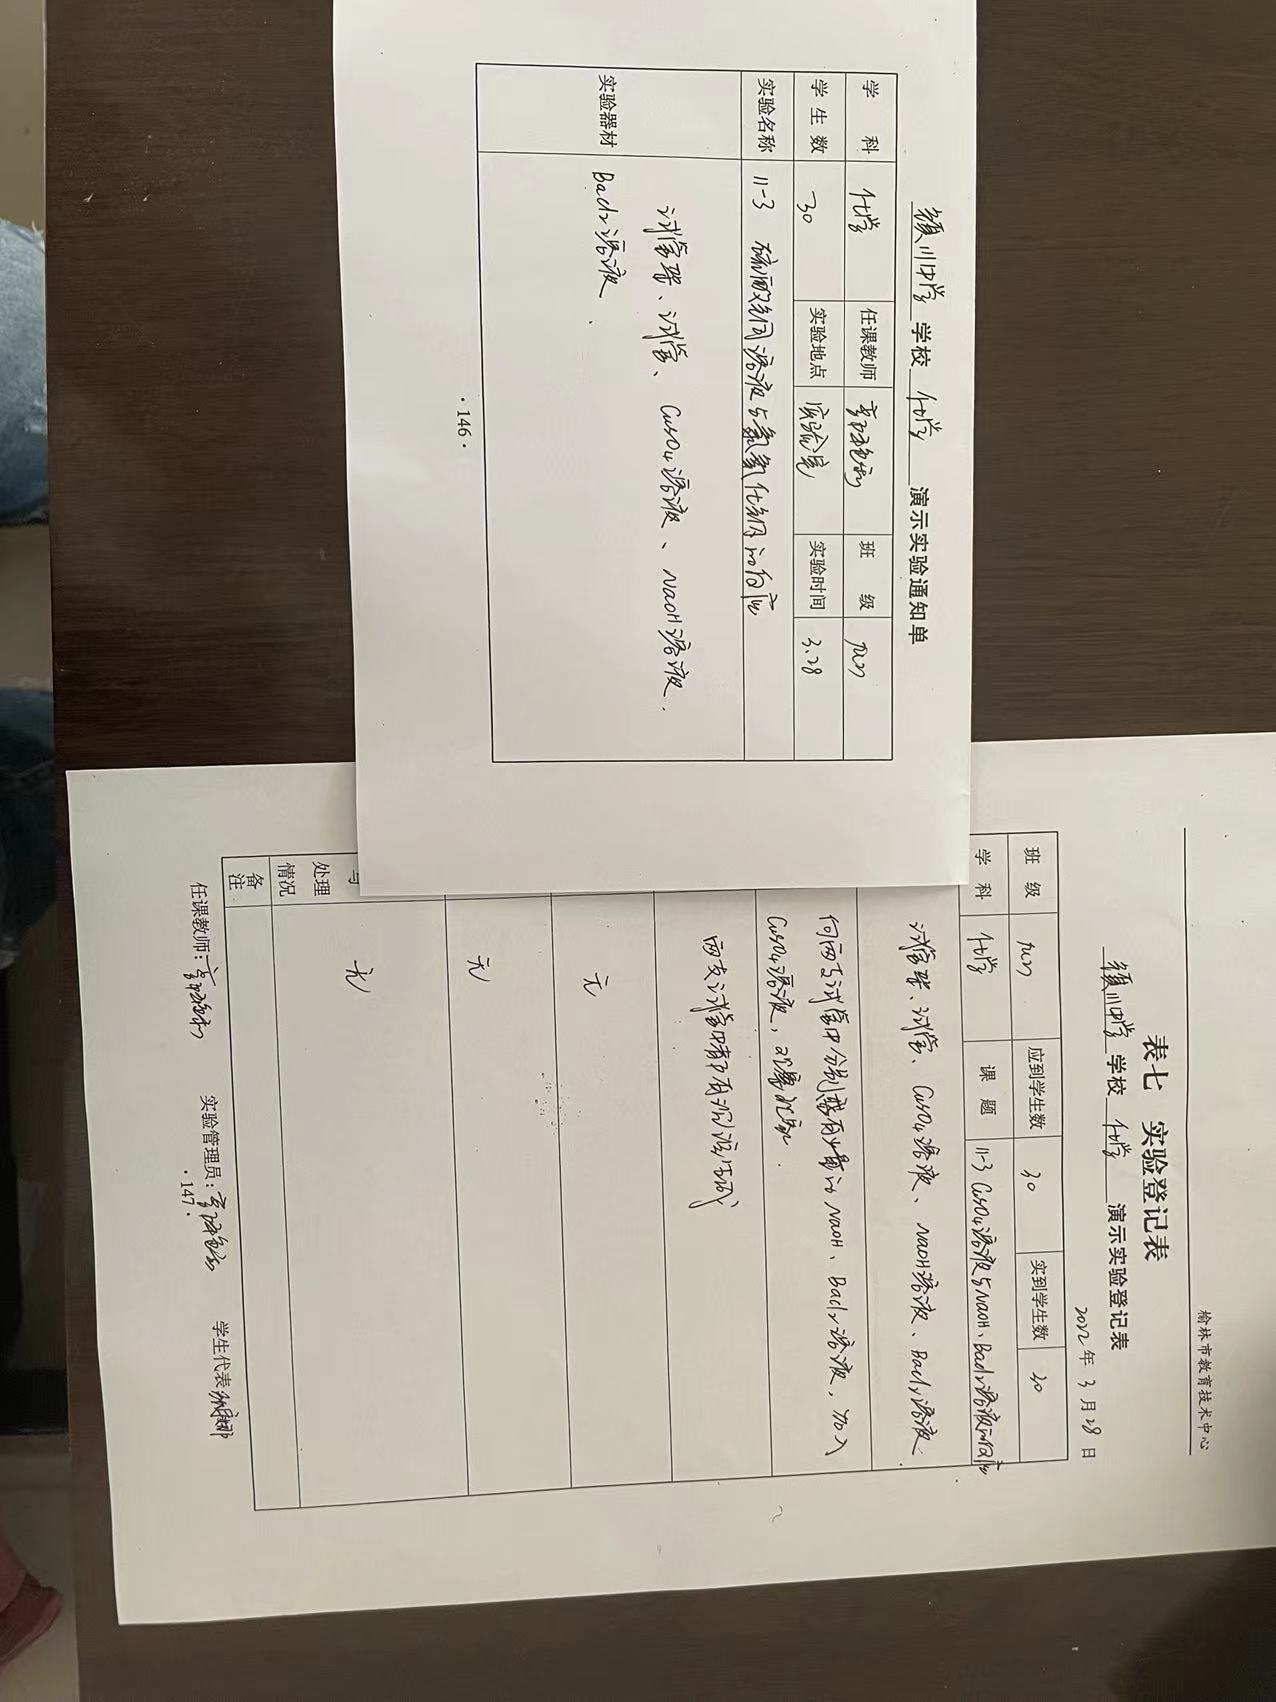 镇川中学 学校 化学 演示实验通知单
学 科 化学 任课教师 班 级 九(2)
学生数 30 实验地点 实验室 实验时间 3.28
实验名称 11-3 硫酸铜溶液与氢氧化钠的反应
实验器材
试管架、试管、CuSO4溶液、NaOH溶液、
BaCl2溶液.
·146·
榆林市教育技术中心
表七 实验登记表
镇川中学 学校 化学 演示实验登记表
2022年 3月28日
班 级 九(2) 应到学生数 30 实到学生数 30
学 科 化学 课 题 11-3 CuSO4溶液与NaOH、BaCl2溶液的反应
试管架、试管、CuSO4溶液、NaOH溶液、BaCl2溶液
向两支试管中分别盛有少量的NaOH、BaCl2溶液,加入
CuSO4溶液,观察现象.
两支试管中都有沉淀生成
无
无
处理
情况
无
备
注
任课教师: 实验管理员: 学生代表
·147·